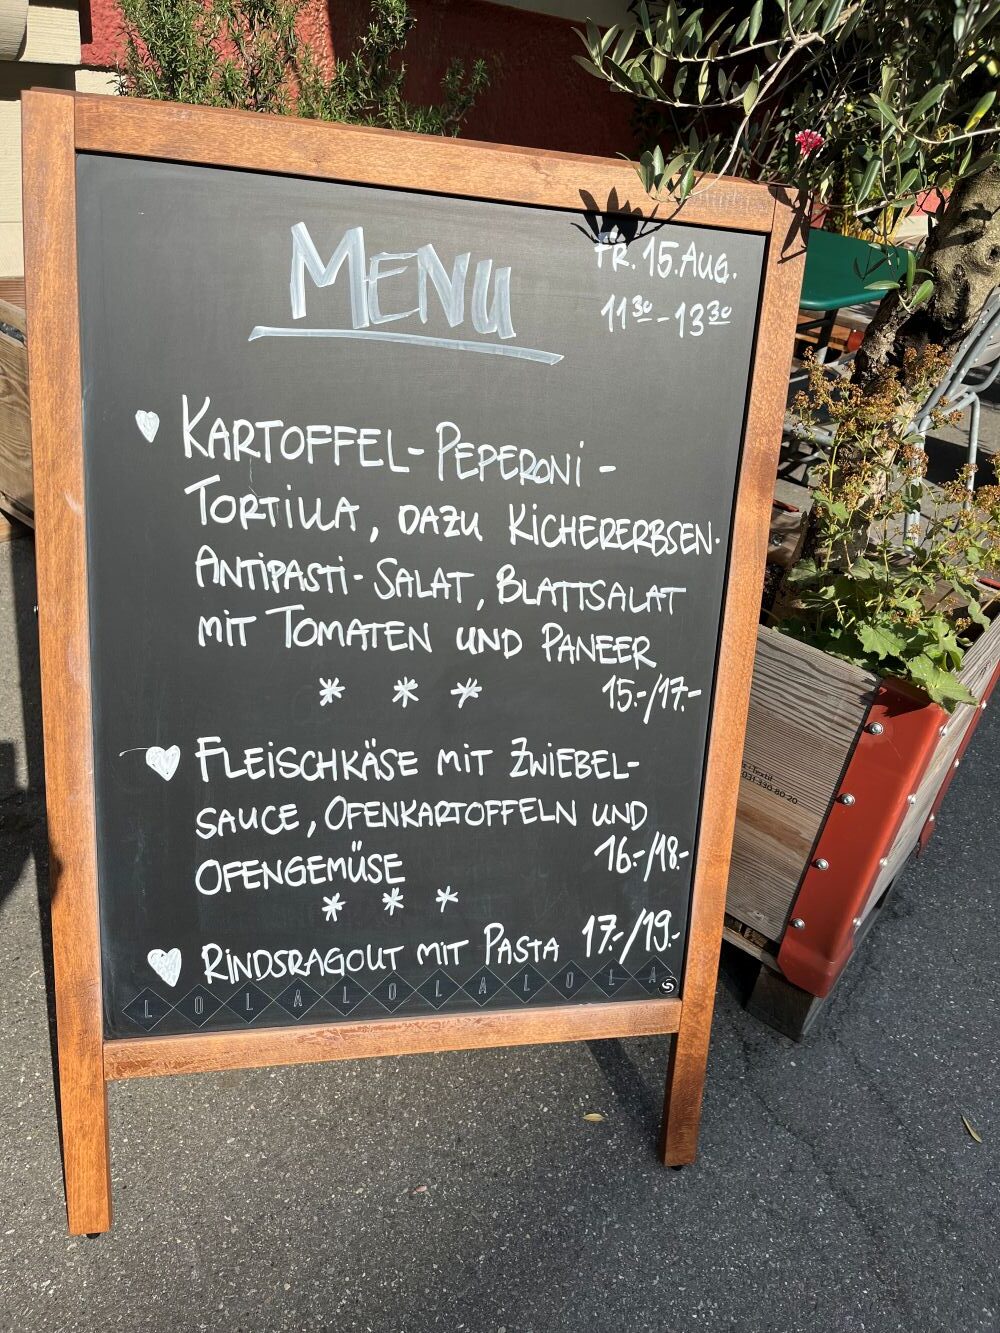 MENU
FR. 15. AUG.
11³⁰ - 13³⁰
KARTOFFEL-PEPERONI-
TORTILLA, DAZU KICHERERBSEN-
ANTIPASTI-SALAT, BLATTSALAT
MIT TOMATEN UND PANEER
* * * 15.-/17.-
FLEISCHKÄSE MIT ZWIEBEL-
SAUCE, OFENKARTOFFELN UND
OFENGEMÜSE 16.-/18.-
* * *
RINDSRAGOUT MIT PASTA 17.-/19.-
LOLALOLALOLA
031 330 80 20